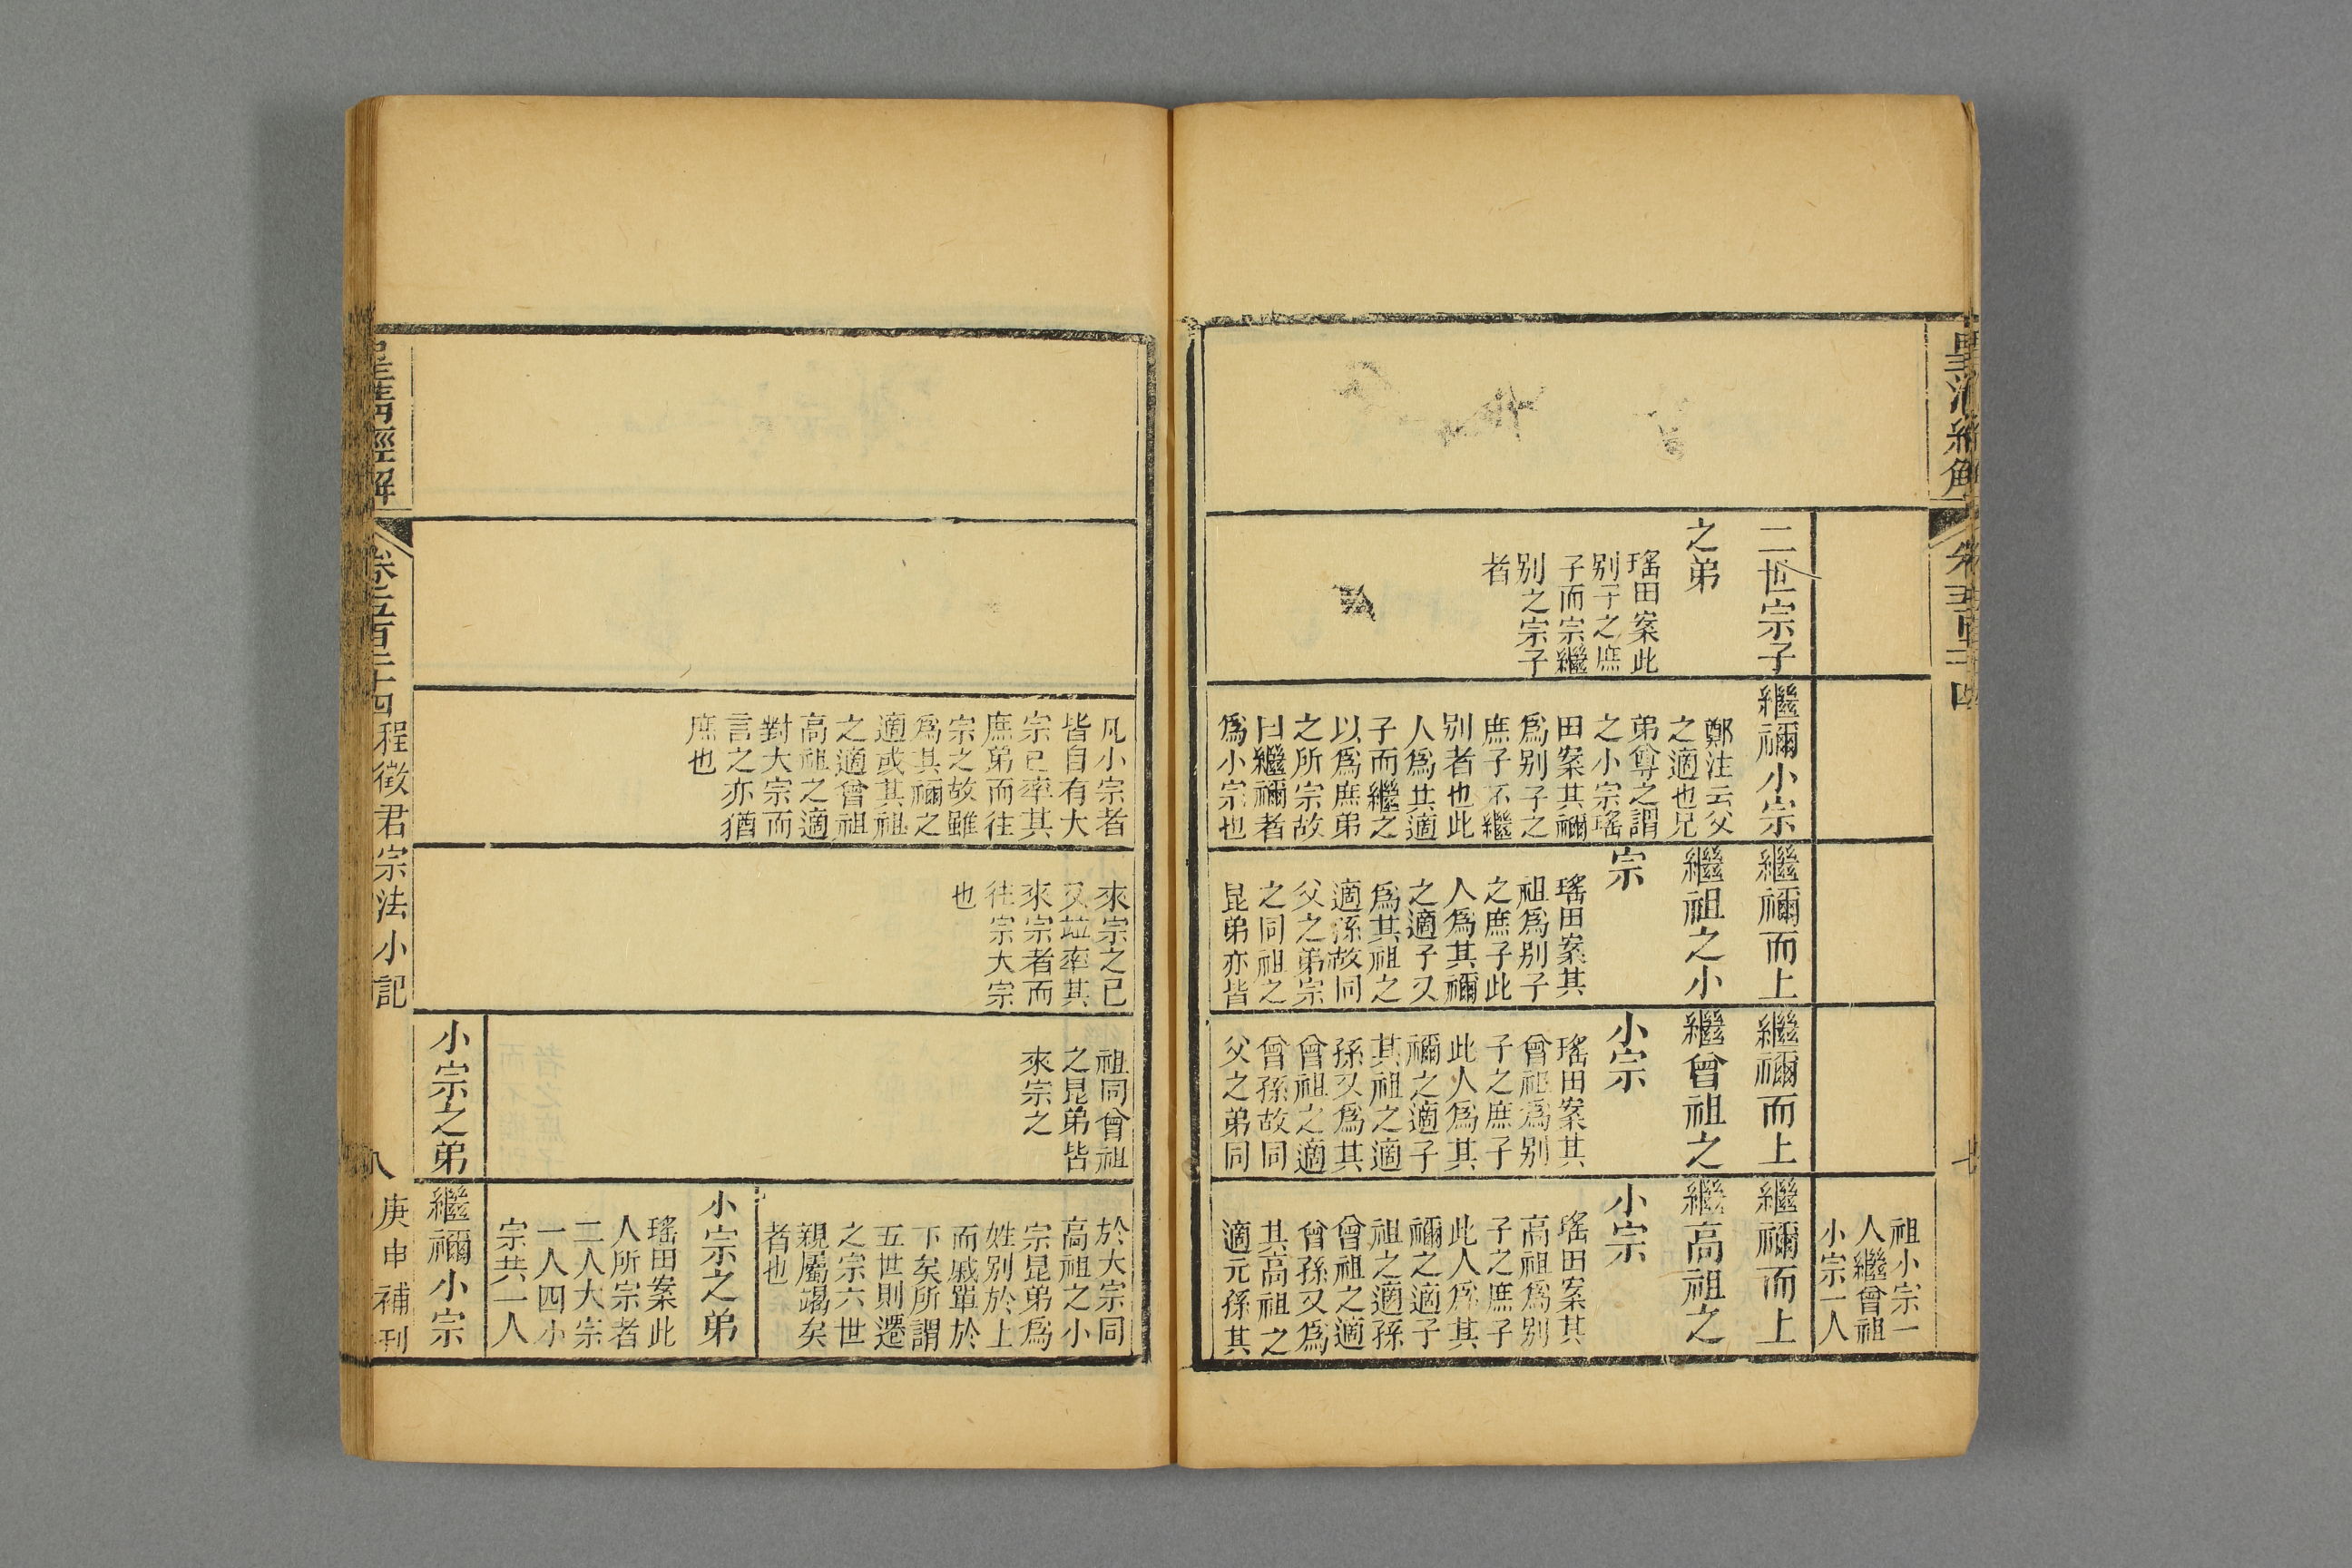 皇清經解
卷五百二十四
七
二世宗子
之弟
瑤田案此
別子之庶
子而宗繼
別之宗子
者
繼禰小宗
鄭注云父
之適也兄
弟尊之謂
之小宗瑤
田案其禰
爲別子之
庶子不繼
別者也此
人爲其適
子而繼之
以爲庶弟
之所宗故
曰繼禰者
爲小宗也
繼禰而上
繼祖之小
宗
瑤田案其
祖爲別子
之庶子此
人爲其禰
之適子又
爲其祖之
適孫故同
父之弟宗
之同祖之
昆弟亦皆
繼禰而上
繼曾祖之
小宗
瑤田案其
曾祖爲別
子之庶子
此人爲其
禰之適子
其祖之適
孫又爲其
曾祖之適
曾孫故同
父之弟同
祖小宗一
人繼曾祖
小宗一人
繼禰而上
繼高祖之
小宗
瑤田案其
高祖爲別
子之庶子
此人爲其
禰之適子
祖之適孫
曾祖之適
曾孫又爲
其高祖之
適元孫其
凡小宗者
皆自有大
宗己率其
庶弟而往
宗之故雖
爲其禰之
適或其祖
之適曾祖
高祖之適
對大宗而
言之亦猶
庶也
來宗之己
又竝率其
來宗者而
往宗大宗
也
祖同曾祖
之昆弟皆
來宗之
小宗之弟
於大宗同
高祖之小
宗昆弟爲
姓別於上
而戚單於
下矣所謂
五世則遷
之宗六世
親屬竭矣
者也
小宗之弟
瑤田案此
人所宗者
二人大宗
一人四小
宗共一人
繼禰小宗
皇清經解
卷五百二十四
程徵君宗法小記
八
庚申補刊